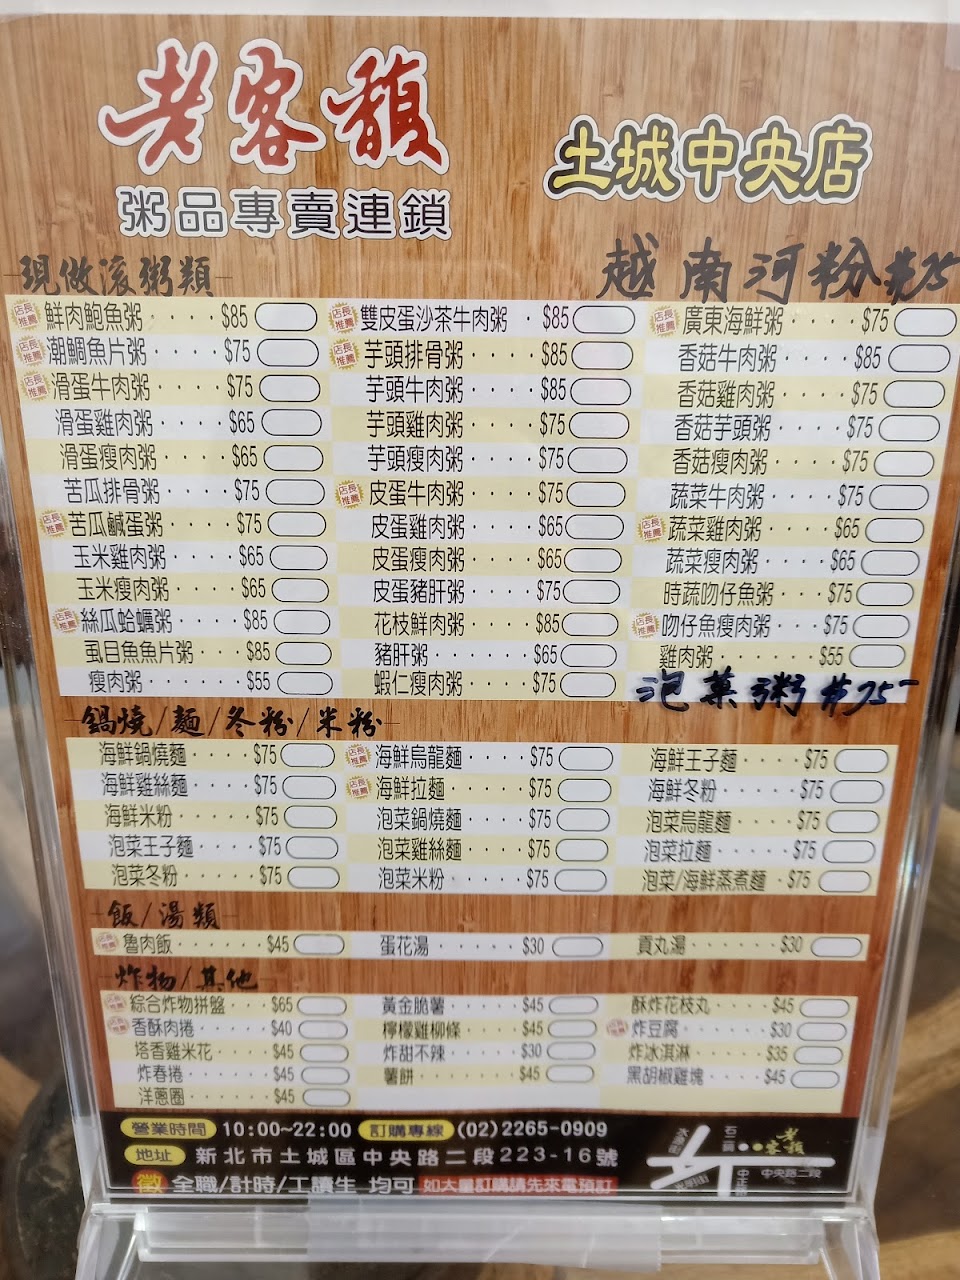 老客馥
粥品專賣連鎖
土城中央店
越南河粉 $75
現做滾粥類
店長推薦 鮮肉鮑魚粥 $85
店長推薦 潮鯛魚片粥 $75
店長推薦 滑蛋牛肉粥 $75
滑蛋雞肉粥 $65
滑蛋瘦肉粥 $65
苦瓜排骨粥 $75
店長推薦 苦瓜鹹蛋粥 $75
玉米雞肉粥 $65
玉米瘦肉粥 $65
店長推薦 絲瓜蛤蠣粥 $85
虱目魚魚片粥 $85
瘦肉粥 $55
店長推薦 雙皮蛋沙茶牛肉粥 $85
店長推薦 芋頭排骨粥 $85
芋頭牛肉粥 $85
芋頭雞肉粥 $75
芋頭瘦肉粥 $75
店長推薦 皮蛋牛肉粥 $75
皮蛋雞肉粥 $65
皮蛋瘦肉粥 $65
皮蛋豬肝粥 $75
花枝鮮肉粥 $85
豬肝粥 $65
蝦仁瘦肉粥 $75
店長推薦 廣東海鮮粥 $75
香菇牛肉粥 $85
香菇雞肉粥 $75
香菇芋頭粥 $75
香菇瘦肉粥 $75
蔬菜牛肉粥 $75
店長推薦 蔬菜雞肉粥 $65
蔬菜瘦肉粥 $65
時蔬吻仔魚粥 $75
店長推薦 吻仔魚瘦肉粥 $75
雞肉粥 $55
泡菜粥 $75
鍋燒/麵/冬粉/米粉
海鮮鍋燒麵 $75
海鮮雞絲麵 $75
海鮮米粉 $75
泡菜王子麵 $75
泡菜冬粉 $75
店長推薦 海鮮烏龍麵 $75
店長推薦 海鮮拉麵 $75
泡菜鍋燒麵 $75
泡菜雞絲麵 $75
泡菜米粉 $75
海鮮王子麵 $75
海鮮冬粉 $75
泡菜烏龍麵 $75
泡菜拉麵 $75
泡菜/海鮮蒸煮麵 $75
飯/湯類
店長推薦 魯肉飯 $45
蛋花湯 $30
貢丸湯 $30
炸物/其他
店長推薦 綜合炸物拼盤 $65
店長推薦 香酥肉捲 $40
塔香雞米花 $45
炸春捲 $45
洋蔥圈 $45
黃金脆薯 $45
檸檬雞柳條 $45
炸甜不辣 $30
薯餅 $45
酥炸花枝丸 $45
炸豆腐 $30
炸冰淇淋 $35
黑胡椒雞塊 $45
營業時間 10:00~22:00 訂購專線 (02)2265-0909
地址 新北市土城區中央路二段223-16號
徵 全職/計時/工讀生 均可 如大量訂購請先來電預訂
老客馥
中央路二段